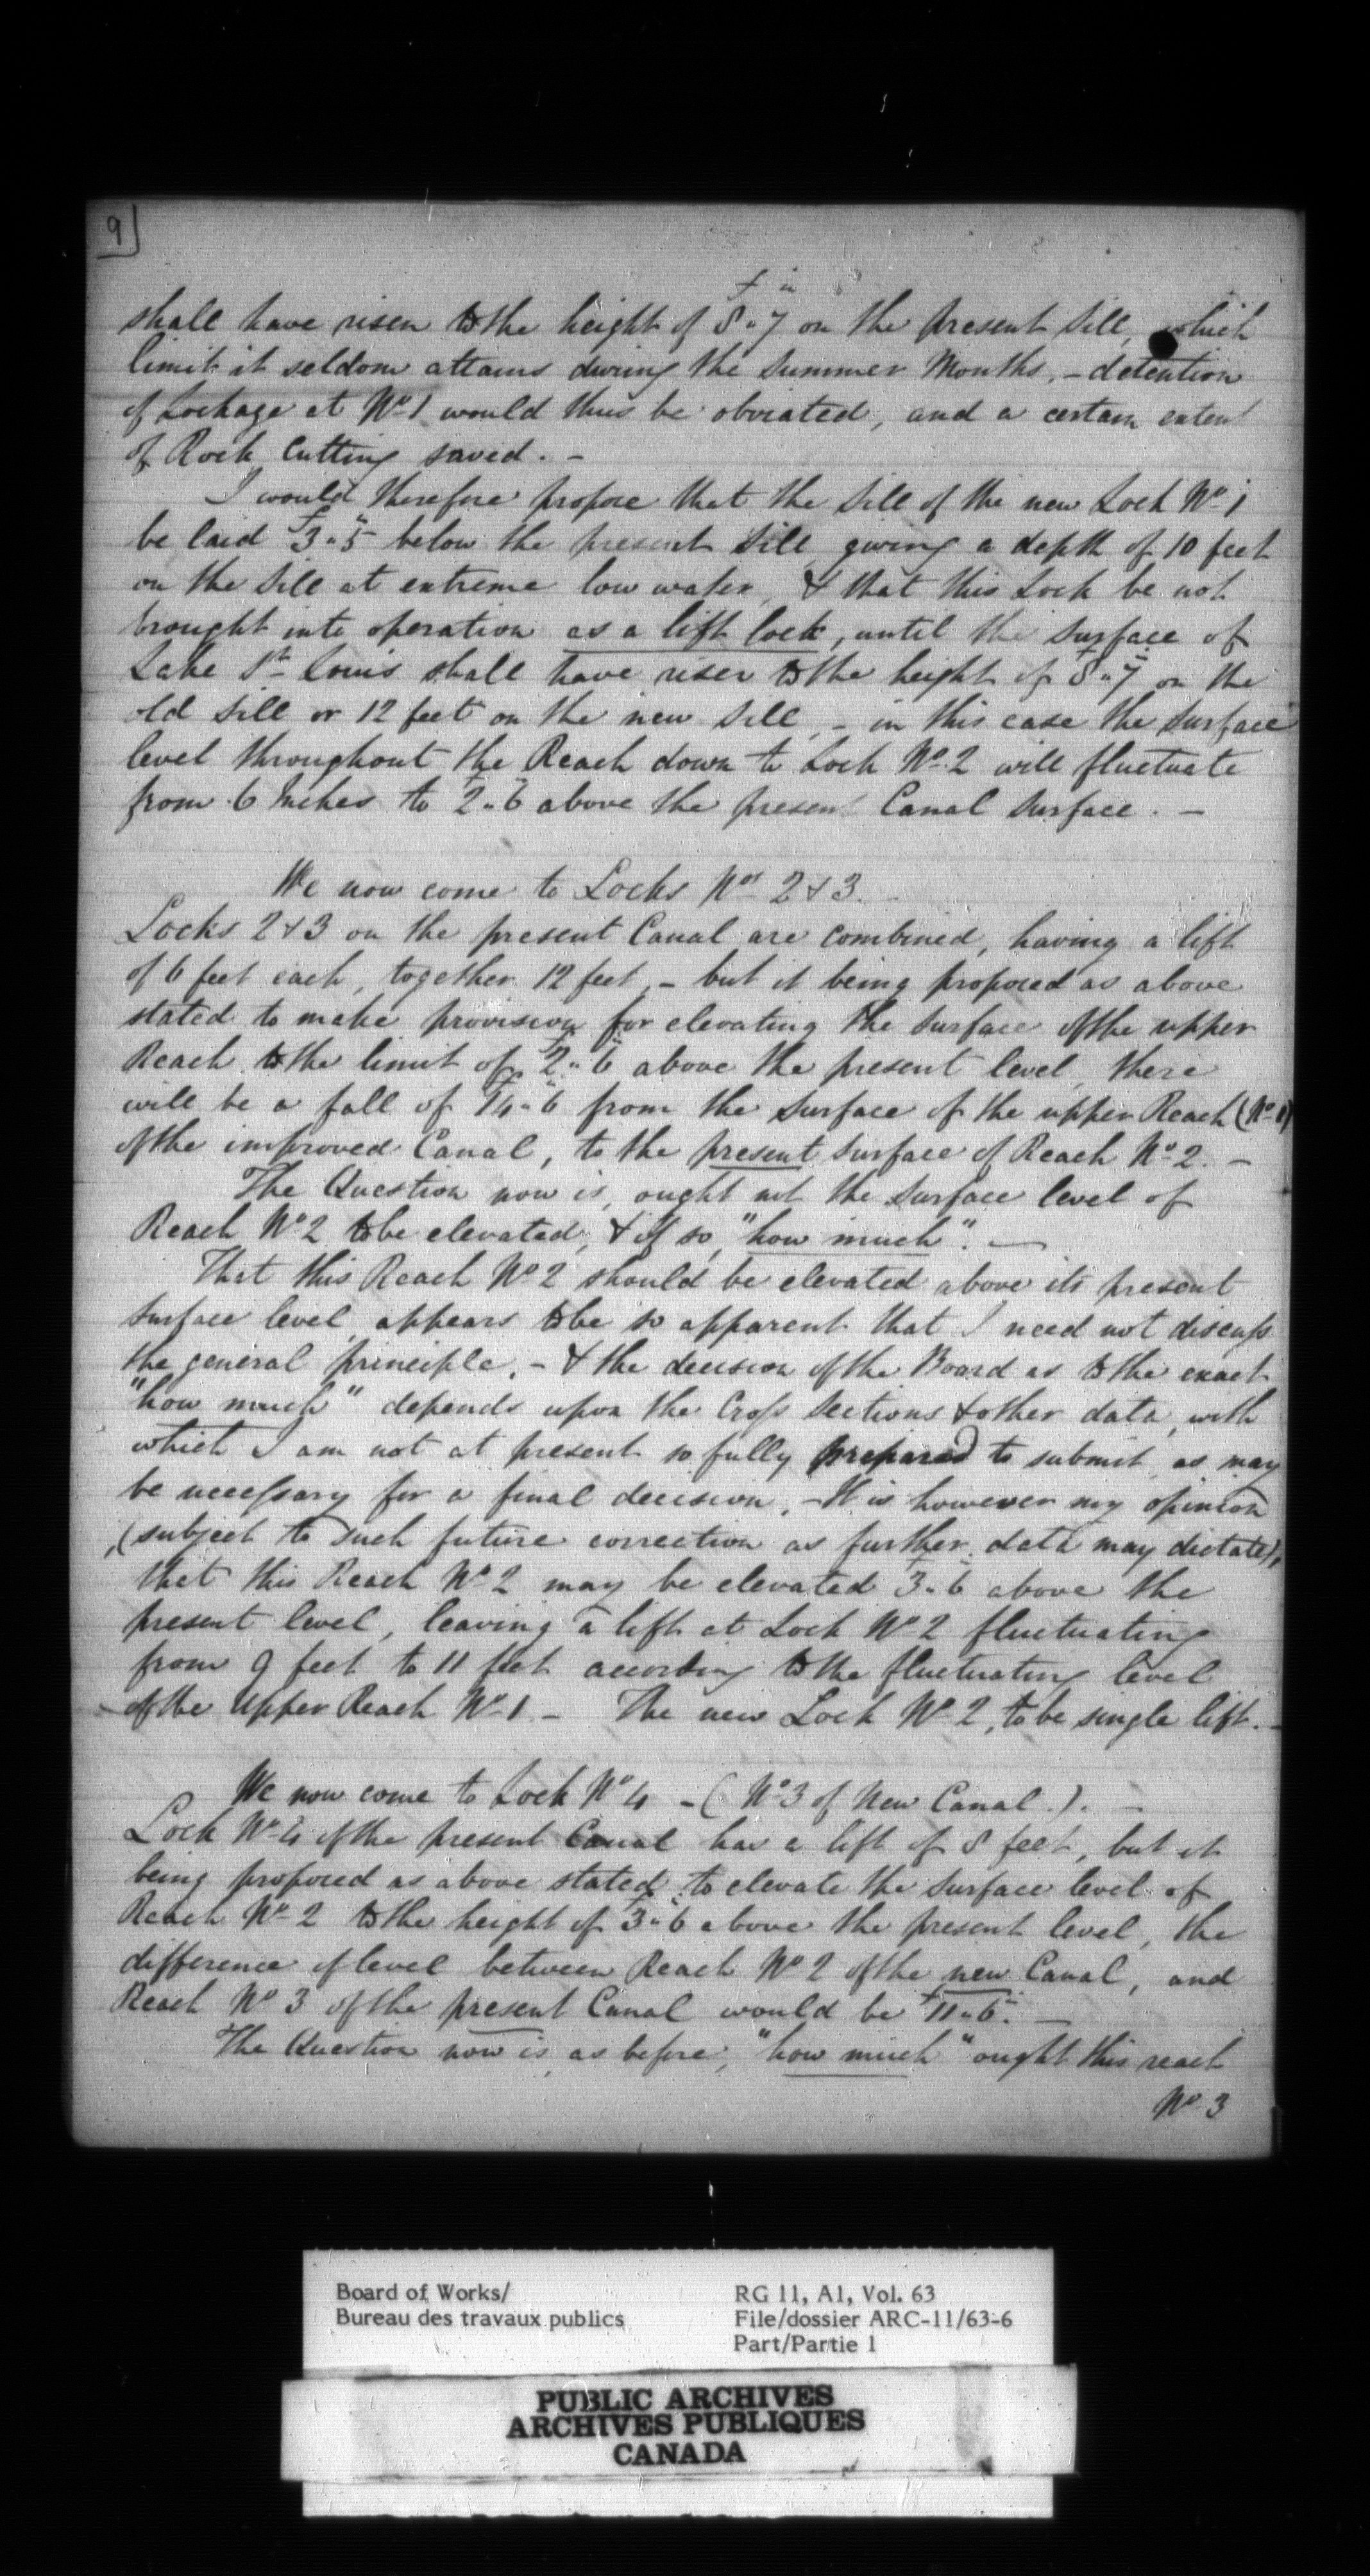 9
shall have risen to the height of 8 f " 7 in on the present Sill, which
limit it seldom attains during the Summer Months, - detention
of Lockage at No 1 would thus be obviated, and a certain extent
of Rock Cutting saved. -
I would therefore propose that the Sill of the new Lock No 1
be laid 3 f " 5 " below the present Sill giving a depth of 10 feet
on the Sill at extreme low water, & that this Lock be not
brought into operation as a lift lock, until the Surface of
Lake St Louis shall have risen to the height of 8 f " 7 " on the
old Sill or 12 feet on the new Sill, - in this case the Surface
level throughout the Reach down to Lock No 2 will fluctuate
from 6 Inches to 2 f " 6 " above the present Canal Surface. -
We now come to Locks Nos 2 & 3. -
Locks 2 & 3 on the present Canal are combined, having a lift
of 6 feet each, together 12 feet, - but it being proposed as above
stated to make provision for elevating the Surface of the upper
Reach to the limit of 2 f " 6 " above the present level, there
will be a fall of 14 f " 6 " from the Surface of the upper Reach (No 1)
of the improved Canal, to the present Surface of Reach No 2. -
The Question now is, ought not the Surface level of
Reach No 2 to be elevated, & if so, "how much". -
That this Reach No 2 should be elevated above its present
Surface level, appears to be so apparent that I need not discuss
the general principle, - & the decision of the Board as to the exact
"how much" depends upon the Cross Sections & other data, with
which I am not at present so fully prepared to submit, as may
be necessary for a final decision, - It is however my opinion
, (subject to such future correction as further data may dictate),
that this Reach No 2 may be elevated 3 f " 6 " above the
present level, leaving a lift at Lock No 2 fluctuating
from 9 feet to 11 feet according to the fluctuating level
of the Upper Reach No 1. - The new Lock No 2, to be single lift. -
We now come to Lock No 4 - (No 3 of New Canal.). -
Lock No 4 of the present Canal has a lift of 8 feet, but it
being proposed as above stated, to elevate the Surface level of
Reach No 2 to the height of 3 f " 6 " above the present level, the
difference of level between Reach No 2 of the new Canal, and
Reach No 3 of the present Canal would be 11 f " 6 ". -
The Question now is, as before, "how much" ought this reach
No 3
Board of Works/
Bureau des travaux publics
RG 11, A1, Vol. 63
File/dossier ARC-11/63-6
Part/Partie 1
PUBLIC ARCHIVES
ARCHIVES PUBLIQUES
CANADA